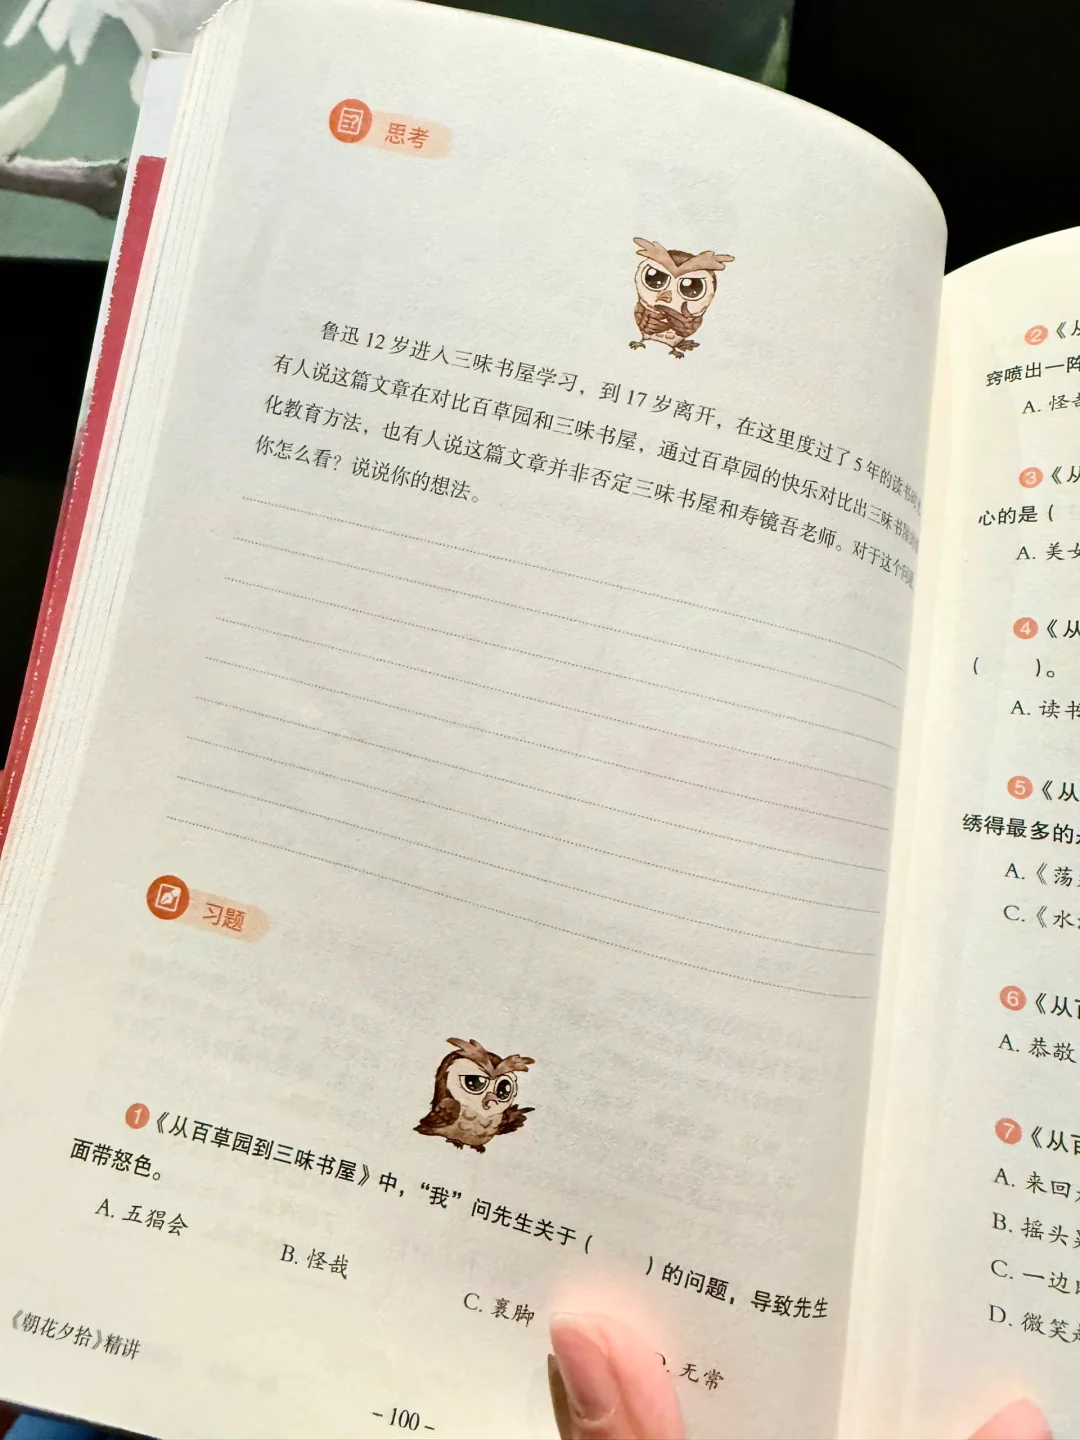 思考
鲁迅 12 岁进入三味书屋学习，到 17 岁离开，在这里度过了 5 年的读书时
有人说这篇文章在对比百草园和三味书屋，通过百草园的快乐对比出三味书屋
化教育方法，也有人说这篇文章并非否定三味书屋和寿镜吾老师。对于这个问题
你怎么看？说说你的想法。
习题
1《从百草园到三味书屋》中，“我”问先生关于（ ）的问题，导致先生
面带怒色。
A. 五猖会
B. 怪哉
C. 裹脚
D. 无常
《朝花夕拾》精讲
-100-
2《从
窍喷出一阵
A. 怪哉
3《从
心的是（
A. 美女
4《从
（ ）。
A. 读书
5《从
绣得最多的是
A.《荡
C.《水
6《从百
A. 恭敬
7《从百
A. 来回
B. 摇头
C. 一边
D. 微笑